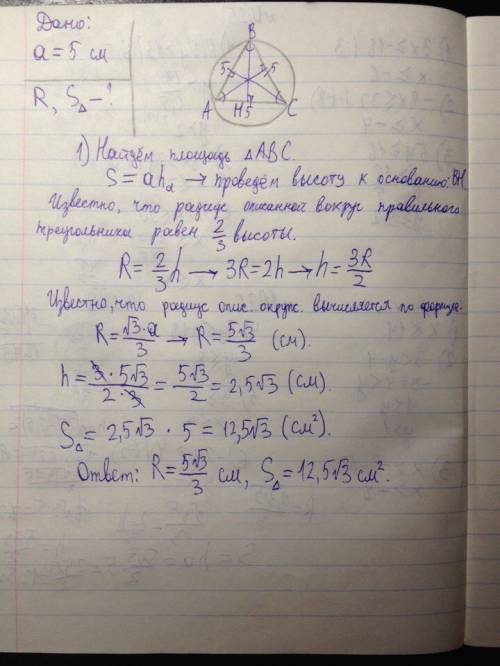 Дано:
a = 5 см
R, S△ - ?
B
5
5
A
H
5
C
1) Найдём площадь △ABC.
S = ahₐ → проведём высоту к основанию: BH.
Известно, что радиус описанной вокруг правильного
треугольника равен 2/3 высоты.
R = 2/3 h → 3R = 2h → h = 3R/2
Известно, что радиус опис. окружн. вычисляется по формуле.
R = √3·a/3 → R = 5√3/3 (см).
h = 3·5√3/2·3 = 5√3/2 = 2,5√3 (см).
S△ = 2,5√3 · 5 = 12,5√3 (см²).
Ответ: R = 5√3/3 см, S△ = 12,5√3 см².